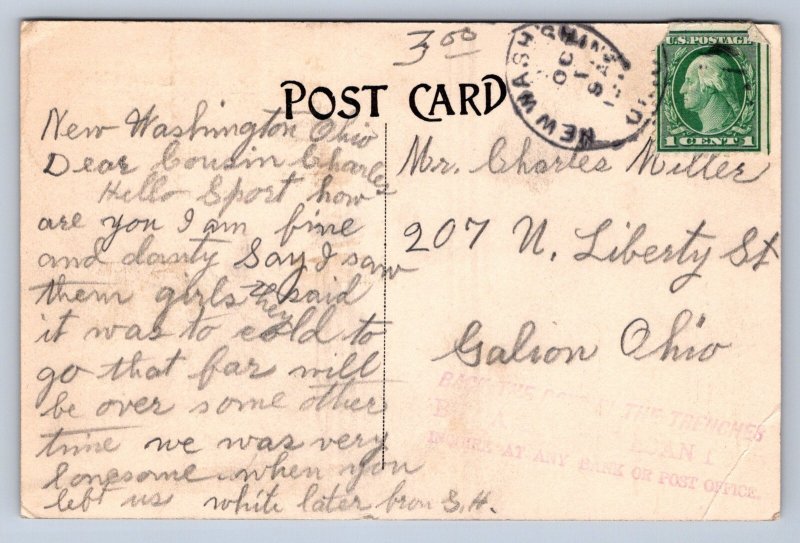 3.00
POST CARD
NEW WASHINGTON
OC
U.S. POSTAGE
1 CENT 1
New Washington Ohio
Dear Cousin Charles
Hello Sport how
are you I am fine
and danty Say I saw
them girls they said
it was to cold to
go that far will
be over some other
time we was very
lonesome when you
left us white later from S.H.
Mr. Charles Miller
207 N. Liberty St
Galion Ohio
BACK THE BOYS IN THE TRENCHES
LOAN
INQUIRE AT ANY BANK OR POST OFFICE.